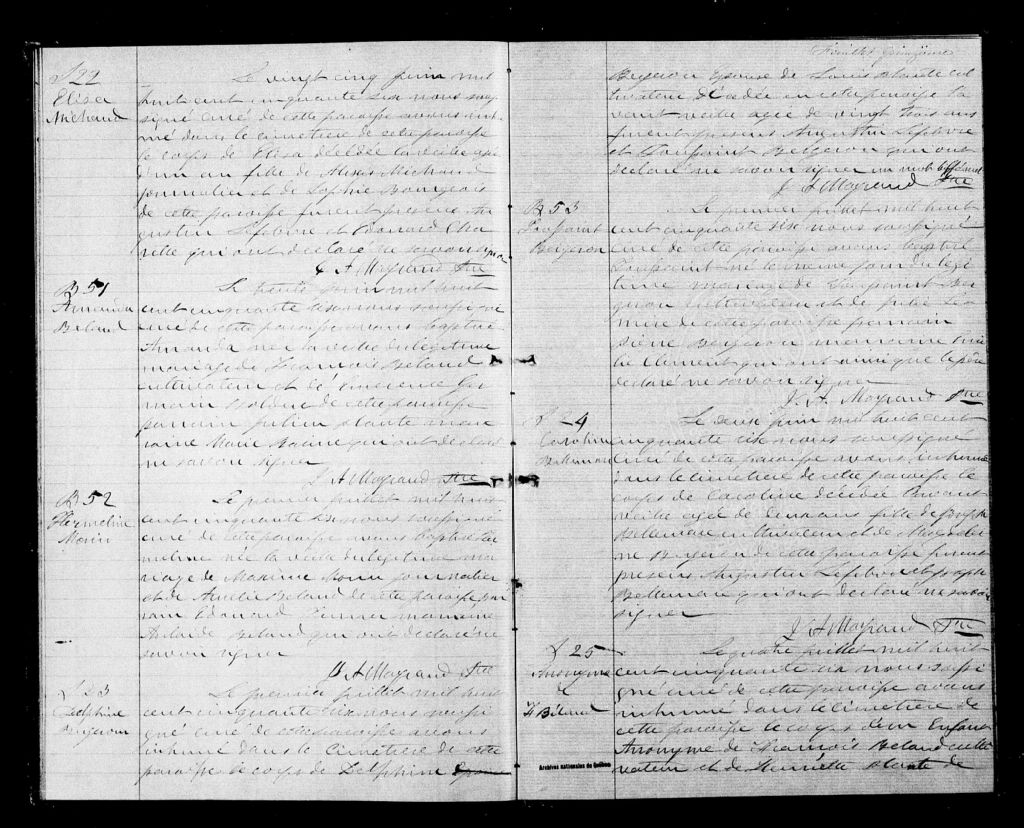 S 22
Elisa
Michaud
Le vingt cinq juin mil
huit cent cinquante six nous sous
signé curé de cette paroisse avons inhu
mé dans le cimetière de cette paroisse
le corps de Elisa décédée la veille agée
d'un an fille de Alexis Michaud
journalier et de Sophie Bourgeois
de cette paroisse furent présens Au
gustin Lefebvre et Edouard
qui ont declaré ne savoir signer
J. A. Mayrand Ptre
B 51
Amanda
Beland
Le trente juin mil huit
cent cinquante six nous soussigné
curé de cette paroisse avons baptisé
Amanda née la veille du légitime
mariage de Francois Beland
cultivateur et de
de cette paroisse
parrain Julien Plante mar
raine Marie Racine qui ont declaré
ne savoir signer
J. A. Mayrand Ptre
B 52
Hermeline
Morin
Le premier juillet mil huit
cent cinquante six nous soussigné
curé de cette paroisse avons baptisé Her
meline née la veille du légitime ma
riage de Maxime Morin journalier
et de Amélie Beland de cette paroisse par
rain Edouard marraine
Adelaide Beland qui ont declaré ne
savoir signer
J. A. Mayrand Ptre
S 23
Delphine
Bergeron
Le premier juillet mil huit
cent cinquante six nous soussi
gné curé de cette paroisse avons
inhumé dans le Cimetière de cette
paroisse le corps de Delphine
Feuillet quinzième
Bergeron Epouse de Louis Plante cul
tivateur décédée en cette paroisse l'a
vant veille agée de vingt trois ans
furent présens Augustin Lefebvre
et Toussaint Bergeron qui ont
declaré ne savoir signer un mot biffé nul
J. A. Mayrand Ptre
B 53
Toussaint
Bergeron
Le premier juillet mil huit
cent cinquante six nous soussigné
curé de cette paroisse avons baptisé
Toussaint né le même jour du légi
time mariage de Toussaint Ber
geron cultivateur et de
de cette paroisse parrain
Bergeron marraine
Clement qui ont ainsi que le père
declaré ne savoir signer
J. A. Mayrand Ptre
S 24
Caroline
Bellemare
Le deux juin mil huit cent
cinquante six nous soussigné
curé de cette paroisse avons inhumé
dans le cimetière de cette paroisse le
corps de Caroline décédée l'avant
veille agée de deux ans fille de Joseph
Bellemare cultivateur et de Magdelei
ne Bergeron de cette paroisse furent
présens Augustin Lefebvre et Joseph
Bellemare qui ont declaré ne savoir
signer
J. A. Mayrand Ptre
S 25
Anonyme
F Béland
Le quatre juillet mil huit
cent cinquante six nous soussi
gné curé de cette paroisse avons
inhumé dans le cimetière de
cette paroisse le corps d'un Enfant
Anonyme de Francois Beland culti
vateur et de Henriette Plante de
Archives nationales du Québec